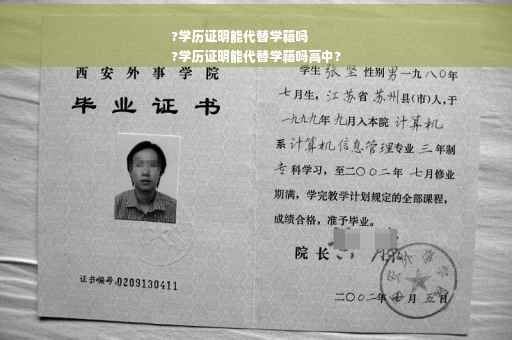 ?学历证明能代替学籍吗
?学历证明能代替学籍吗高中?
西安外事学院
毕业证书
证书编号:0209130411
学生张坚性别男一九八〇年
七月生,江苏省苏州县(市)人,于
一九九九年九月入本院计算机
系计算机信息管理专业三年制
专科学习,至二〇〇二年七月修业
期满,学完教学计划规定的全部课程,
成绩合格,准予毕业。
院长
二〇〇二年 月五日